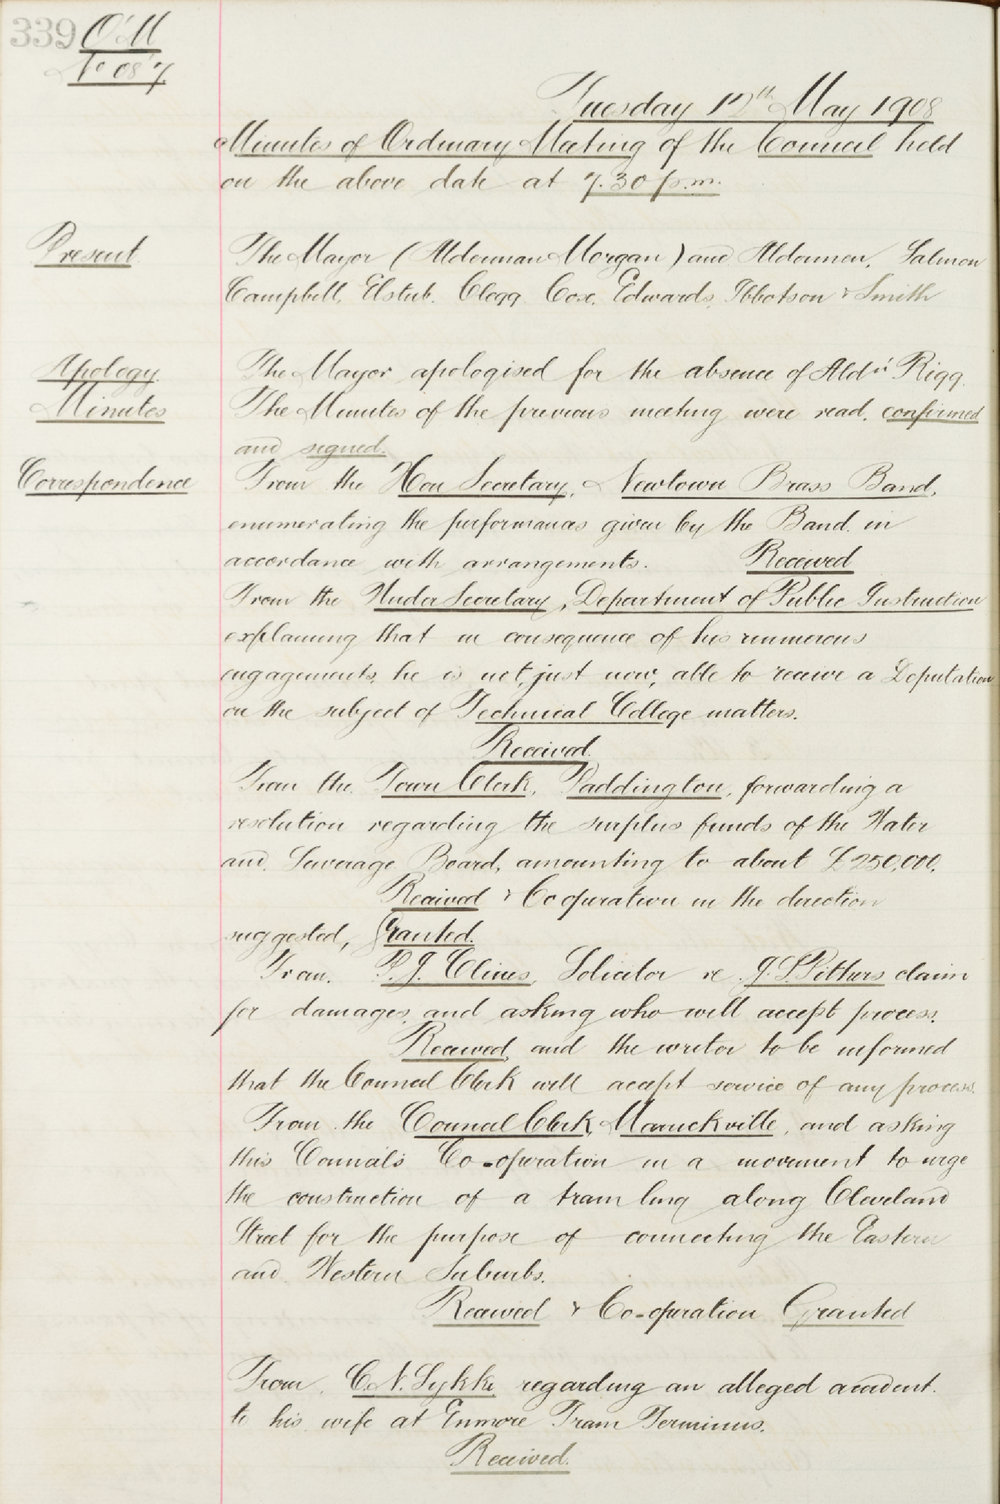 339 O'M
No 08/7
Tuesday 12th May 1908
Minutes of Ordinary Meeting of the Council held
on the above date at 7.30 p.m.
Present
The Mayor (Alderman Morgan) and Aldermen, Salmon
Campbell, Elstub, Clegg, Cox, Edwards, Ibbotson & Smith
Apology
The Mayor apologised for the absence of Aldn Rigg.
Minutes
The Minutes of the previous meeting were read, confirmed
and signed.
Correspondence
From the Hon Secretary, Newtown Brass Band,
enumerating the performances given by the Band in
accordance with arrangements. Received
From the Under Secretary, Department of Public Instruction
explaining that in consequence of his numerous
engagements, he is not, just now, able to receive a Deputation
on the subject of Technical College matters.
Received
From the Town Clerk, Paddington, forwarding a
resolution regarding the surplus funds of the Water
and Sewerage Board, amounting to about £250,000.
Received & Cooperation in the direction
suggested, Granted.
From P. J. Clines, Solicitor re J. S. Pithers claim
for damages, and asking who will accept process.
Received, and the writer to be informed
that the Council Clerk will accept service of any process.
From the Council Clerk, Marrickville, and asking
this Council's Co-operation in a movement to urge
the construction of a tram line along Cleveland
Street for the purpose of connecting the Eastern
and Western Suburbs.
Received & Co-operation Granted
From C. N. Sykke regarding an alleged accident
to his wife at Enmore Tram Terminus.
Received.